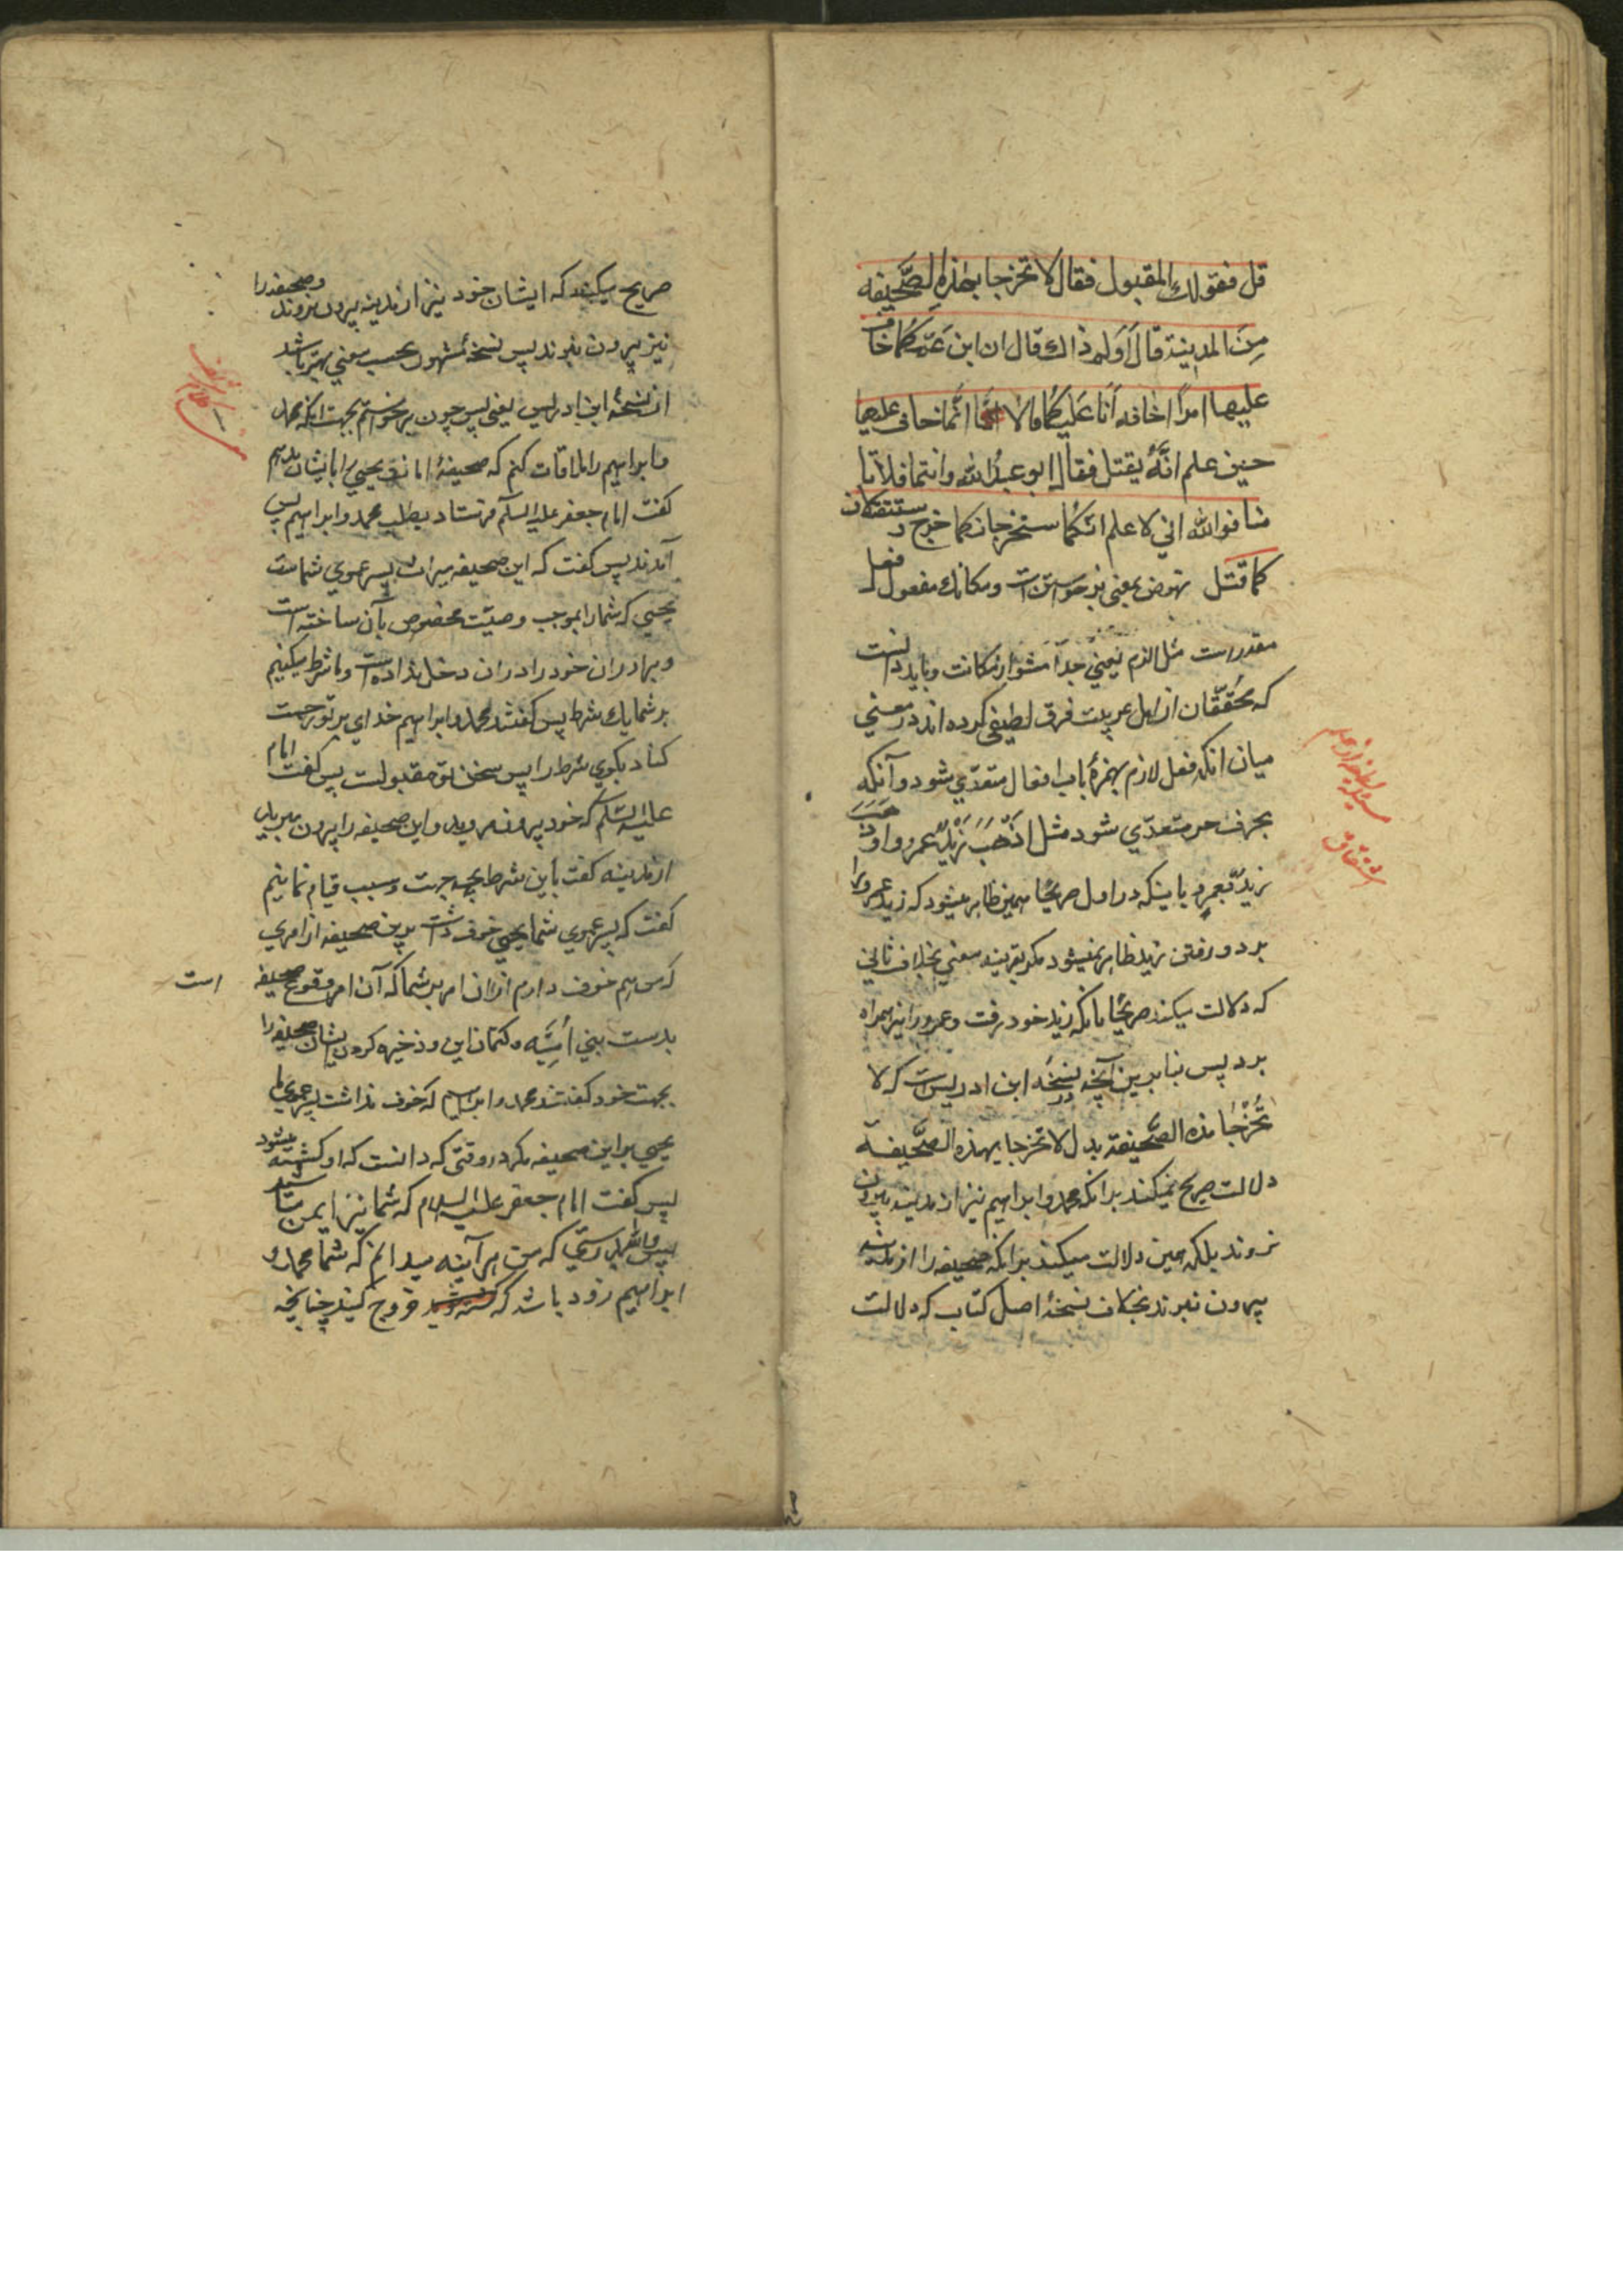 قل فقولك المقبول فقال لا تخرجا بهذه الصّحيفه
مِنَ المدينة قالا وَلم ذاك قال ان ابن عَمّكما خاف
عليها امراً اخافه اَنَا عَليكما قالا انّما خاف عليها
حين علم انّهُ يقتل فقال ابو عبدُ الله وانتما فلا تا
منا فوالله اني لاعلم انّكما ستخرجان كما خرج و ستقتلان
كما قتل نهوض بمعنى برخواستن است ومكانك مفعول فعل
مقدر است مثل الزم يعني جدّا مشو از مكانت وبايد دانست
كه محُقّقان از اهل عربيت فرق لطيفى كرده اند در معني
ميان انكه فعل لازم بهمزهٔ باب افعال متعدّي شود وآنكه
بحرف جر متعدّي شود مثل اَذهَبَ زَيْدٌ عمرو وا و ذهَبَ
زيدٌ بعمرٍو با ينكه در اول صريحًا همين ظاهر ميشود كه زيد عمرو را
برد ورفتن زيد ظاهر نميشود مكر بقرينه معني بخلاف ثاني
كه دلالت ميكند صريحًا بانكه زيد خود رفت وعمرو را نيز همراه
برد پس بنا برين آنچه در نسخَه ابن ادريس است كه لا
تُخْرِجَا هذه الصَّحيفة بدل لا تخرجا بهذه الصَّحيفة
دلالت صريح نميكند بر انكه محمد وابراهيم نيز از مدينه بيرون
نروند بلكه همين دلالت ميكند بر انكه صحيفه را از مدينه
بيرون نبرند بخلاف نسخهٔ اصل كتاب كه دلالت
صريح ميكند كه ايشان خود نيز از مدينه بيرون نروند وصحيفه را
نيز بيرون نبرند پس نسخهٔ مشهور بحسب معني بهتر باشد
از نسخهٔ ابن ادريس يعنى پس چون برخواستم بجهت انكه محمد
وابراهيم را ملاقات كنم كه صحيفهٔ امانت يحيي را بايشان بدهم
كفت امام جعفر عليه السلام فرستاد بطلب محمد وابراهيم پس
آمدند پس كفت كه اين صحيفه ميراث پسر عموي شماست
يحيي كه شما را بموجب وصيّت مخصوص بآن ساخته است
وبرادران خود را در ان دخل نداده است وما شرط ميكنيم
بر شما يك شرط پس كفتند محمد وابراهيم خداي بر تو رحمت
كناد بكوي شرط را پس سخن تو مقبولست پس كفت امام
عليه السّلام كه خود بيرون مرويد واين صحيفه را بيرون مبريد
از مدينه كفت باين شرط بچه جهت وسبب قيام نمائيم
كفت كه پسر عموي شما يحيى خوف داشت برين صحيفه از امري
كه من هم خوف دارم از ان امر بر شما كه آن امر وقوع صحيفه است
بدست بني اُميّه وكتمان اين وذخيره كردن ايشان صحيفه را
بجهت خود كفتند محمد وابراهيم كه خوف نداشت پسر عموي ما
يحيي بر اين صحيفه مكر در وقتى كه دانست كه او كشته ميشود
پس كفت امام جعفر عليه السلام كه شما نيز ايمن مباشيد
پس والله بدرستي كه من هر آينه ميدانم كه شما محمد و
ابراهيم زود باشد كه خروج كنيد چنانچه